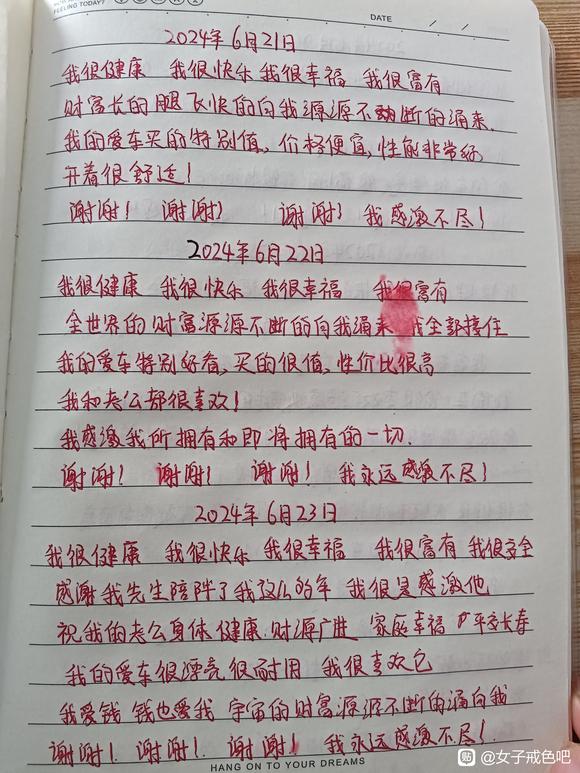 FEELING TODAY?
DATE / /
2024年6月21日
我很健康 我很快乐 我很幸福 我很富有
财富长的腿飞快的向我源源不断的涌来.
我的爱车买的特别值,价格便宜,性能非常好
开着很舒适!
谢谢! 谢谢! 谢谢! 我感激不尽!
2024年6月22日
我很健康 我很快乐 我很幸福 我很富有
全世界的财富源源不断的向我涌来 我全部接住
我的爱车特别好看,买的很值,性价比很高
我和老公都很喜欢!
我感激我所拥有和即将拥有的一切.
谢谢! 谢谢! 谢谢! 我永远感激不尽!
2024年6月23日
我很健康 我很快乐 我很幸福 我很富有 我很安全
感谢我先生陪伴了我这么多年 我很是感激他
祝我的老公身体健康.财源广进 家庭幸福 平安长寿
我的爱车很漂亮很耐用 我很喜欢它
我爱钱 钱也爱我 宇宙的财富源源不断的涌向我
谢谢! 谢谢! 谢谢! 我永远感激不尽!
HANG ON TO YOUR DREAMS
贴 @女子戒色吧